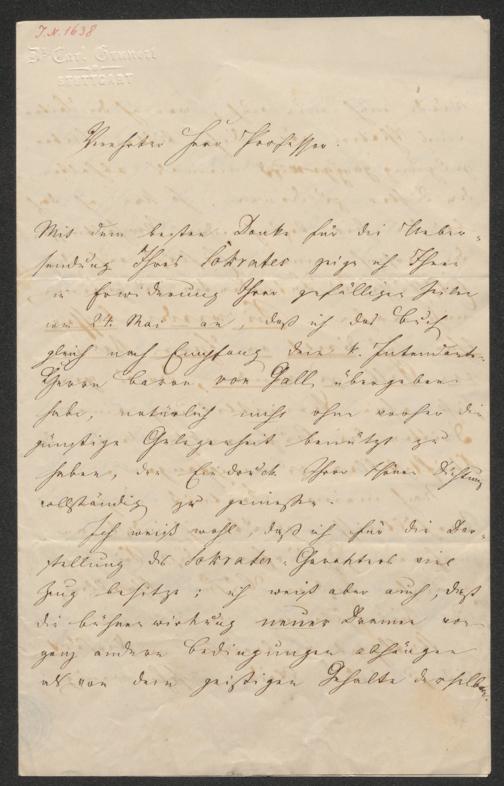 J. N. 1638
Dr Carl Grunert
STUTTGART
Verehrter Herr Professor.
Mit dem besten Danke für die Ueber-
sendung Ihres Sokrates zeige ich Ihnen
in Erwiderung Ihrer gefälligen Zeilen
vom 24. Mai an, daß ich das Buch
gleich nach Empfang dem k. Intendanten
Herrn Baron von Gall übergeben
habe, natürlich nicht ohne vorher die
günstige Gelegenheit benützt zu
haben, den Eindruck Ihrer schönen Dichtung
vollständig zu genießen.
Ich weiß wohl, daß ich für die Dar-
stellung des Sokrates-Charakters viel
Zeug besitze; ich weiß aber auch, daß
die Bühnenwirkung neuer Dramen von
ganz andern Bedingungen abhängen
als von dem geistigen Gehalte derselben.